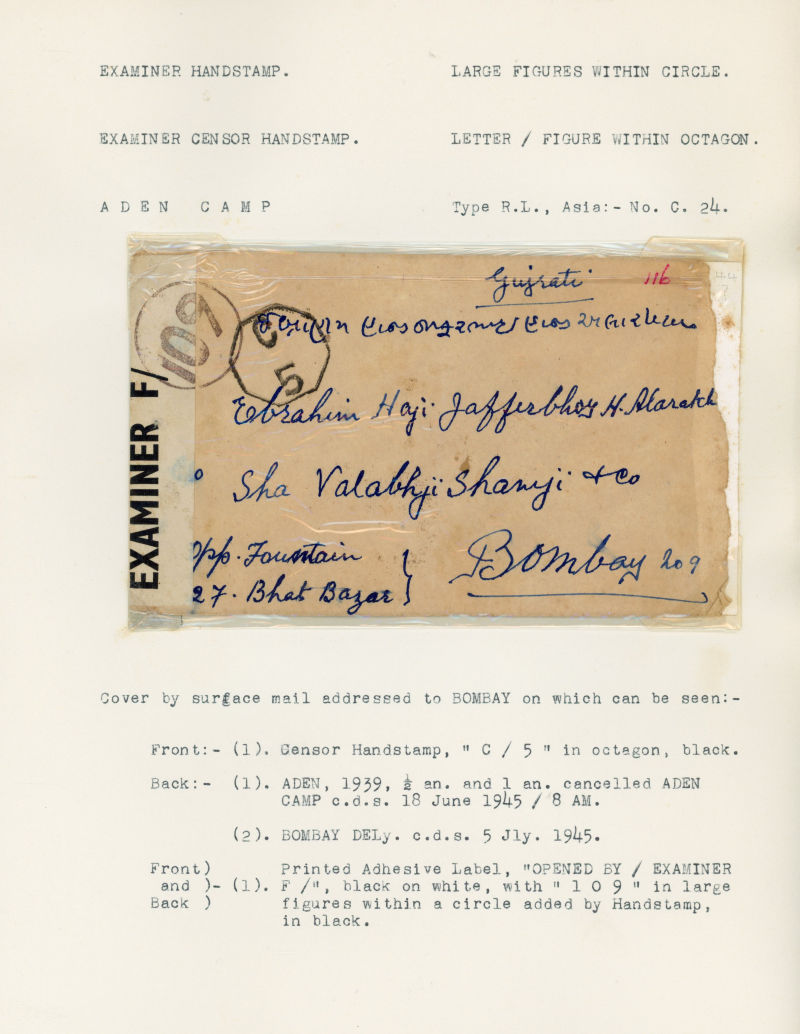 EXAMINER HANDSTAMP. LARGE FIGURES WITHIN CIRCLE.
EXAMINER CENSOR HANDSTAMP. LETTER / FIGURE WITHIN OCTAGON.
A D E N  C A M P Type R.L., Asia:- No. C. 24.
Gujrati 116
44
109
C
5
EXAMINER F/
Ebrahim Haji Jafferbhoy H.
Sha Valabhji Shamji & Co
Opp. Fountain
27. Bhat Bazar
Bombay 209
Cover by surface mail addressed to BOMBAY on which can be seen:-
Front:- (1). Censor Handstamp, " C / 5 " in octagon, black.
Back:- (1). ADEN, 1939, ½ an. and 1 an. cancelled ADEN
CAMP c.d.s. 18 June 1945 / 8 AM.
(2). BOMBAY DELy. c.d.s. 5 Jly. 1945.
Front) Printed Adhesive Label, "OPENED BY / EXAMINER
and )- (1). F /", black on white, with " 1 0 9 " in large
Back ) figures within a circle added by Handstamp,
in black.